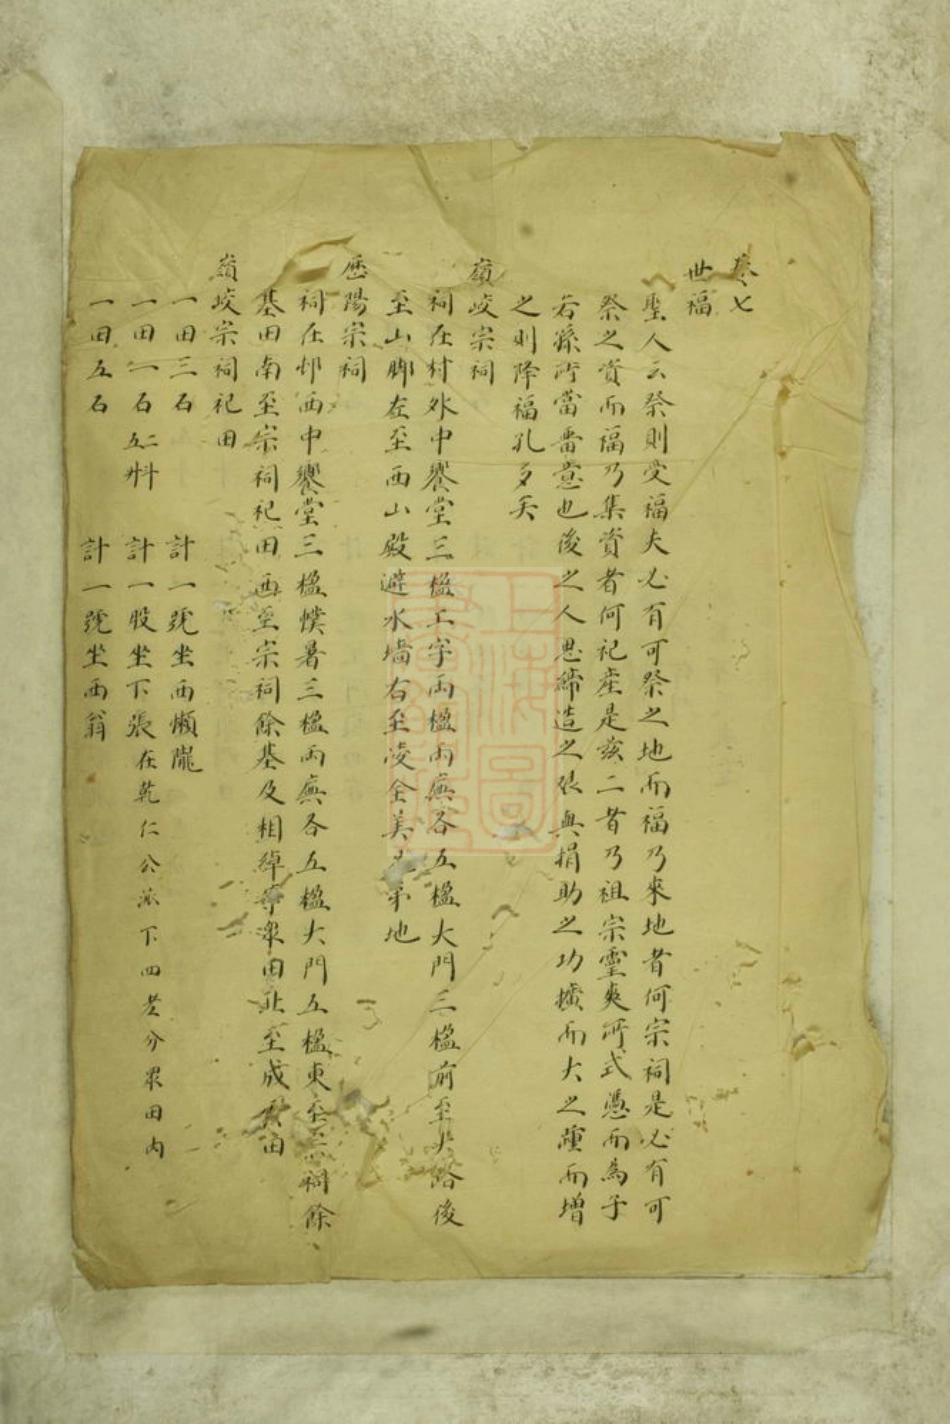 卷七
世福
聖人云祭則受福夫必有可祭之地而福乃來地者何宗祠是必有可
祭之資而福乃集資者何祀産是茲二者乃祖宗靈爽所式憑而為子
若孫所當畱意也後之人思締造之艱與捐助之功擴而大之踵而增
之則降福孔多矣
嶺峧宗祠
祠在村外中饗堂三楹工字兩楹兩廡各五楹大門三楹前至大路後
至山脚左至西山殿避水墙右至凌全美弟地
歴陽宗祠
祠在邨西中饗堂三楹幞暑三楹兩廡各五楹大門五楹東至祠餘
基田南至宗祠祀田西至宗祠餘基及相等衆田北至成田
嶺峧宗祠祀田
一田三石 計一號坐西嬾巃
一田一石二斗五升 計一股坐下張在乾仁公派下四房分衆田内
一田五石 計一號坐西翁
上海圖書館藏